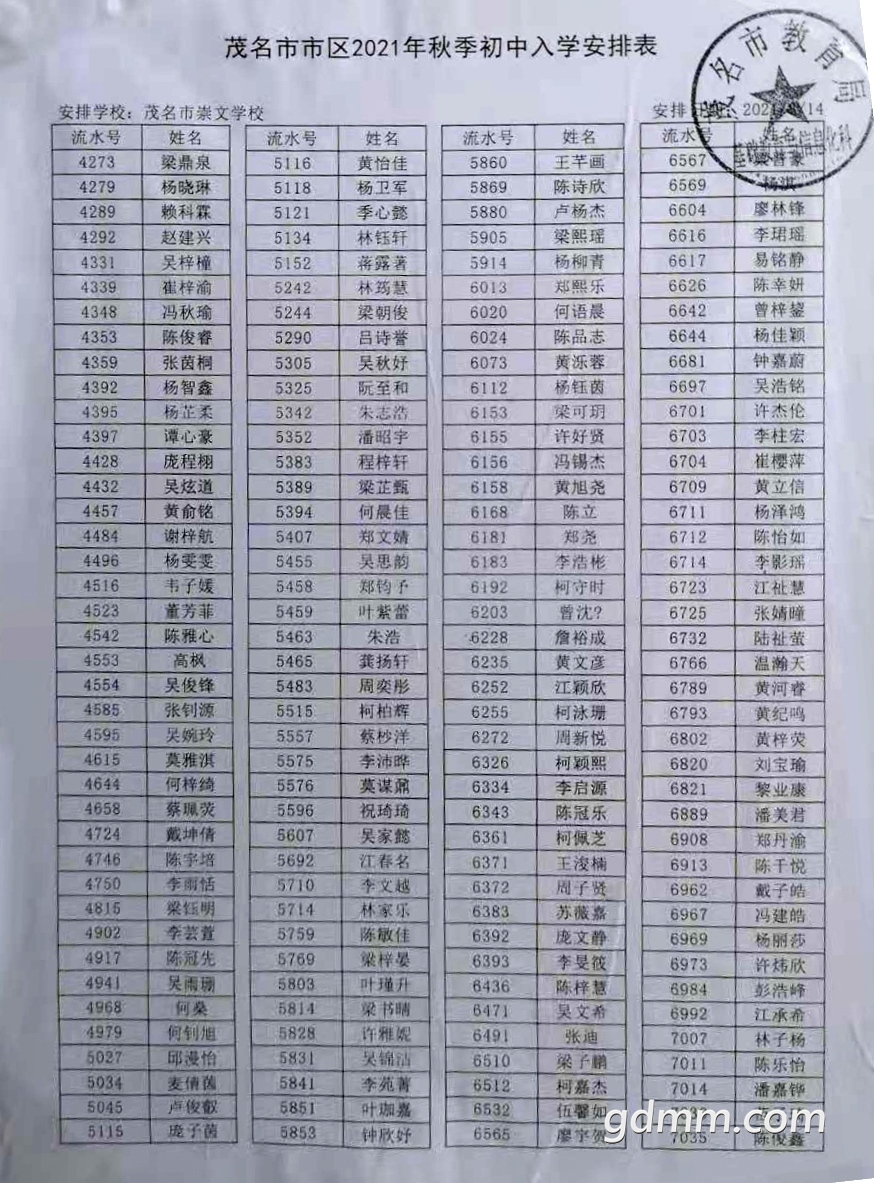 茂名市市区2021年秋季初中入学安排表
安排学校：茂名市崇文学校 安排
茂名市教育局
流水号 姓名 流水号 姓名 流水号 姓名 流水号 姓名
4273 梁鼎泉 5116 黄怡佳 5860 王芊画 6567
4279 杨晓琳 5118 杨卫军 5869 陈诗欣 6569 杨淇
4289 赖科霖 5121 季心懿 5880 卢杨杰 6604 廖林锋
4292 赵建兴 5134 林钰轩 5905 梁熙瑶 6616 李珺瑶
4331 吴梓橦 5152 蒋露著 5914 杨柳青 6617 易铭静
4339 崔梓渝 5242 林筠慧 6013 郑熙乐 6626 陈幸妍
4348 冯秋瑜 5244 梁朝俊 6020 何语晨 6642 曾梓鋆
4353 陈俊睿 5290 吕诗誉 6024 陈品志 6644 杨佳颖
4359 张茵桐 5305 吴秋妤 6073 黄泺蓉 6681 钟嘉蔚
4392 杨智鑫 5325 阮至和 6112 杨钰茵 6697 吴浩铭
4395 杨芷柔 5342 朱志浩 6153 梁可玥 6701 许杰伦
4397 谭心豪 5352 潘昭宇 6155 许好贤 6703 李柱宏
4428 庞程栩 5383 程梓轩 6156 冯锡杰 6704 崔樱萍
4432 吴炫道 5389 梁芷甄 6158 黄旭尧 6709 黄立信
4457 黄俞铭 5394 何晨佳 6168 陈立 6711 杨泽鸿
4484 谢梓航 5407 郑文婧 6181 郑尧 6712 陈怡如
4496 杨雯雯 5455 吴思韵 6183 李浩彬 6714 李影瑶
4516 韦子媛 5458 郑钧予 6192 柯守时 6723 江祉慧
4523 董芳菲 5459 叶紫蕾 6203 曾沈? 6725 张婧瞳
4542 陈雅心 5463 朱浩 6228 詹裕成 6732 陆祉萤
4553 高枫 5465 龚扬轩 6235 黄文彦 6766 温瀚天
4554 吴俊锋 5483 周奕彤 6252 江颖欣 6789 黄河睿
4585 张钊源 5515 柯柏辉 6255 柯泳珊 6793 黄纪鸣
4595 吴婉玲 5557 蔡杪洋 6272 周新悦 6802 黄梓荧
4615 莫雅淇 5575 李沛晔 6326 柯颖熙 6820 刘宝瑜
4644 何梓绮 5576 莫谋鼐 6334 李启源 6821 黎业康
4658 蔡珮荧 5596 祝琦琦 6343 陈冠乐 6889 潘美君
4724 戴坤倩 5607 吴家懿 6361 柯佩芝 6908 郑丹渝
4746 陈宇培 5692 江春名 6371 王浚楠 6913 陈干悦
4750 李雨恬 5710 李文越 6372 周子贤 6962 戴子皓
4815 梁钰明 5714 林家乐 6383 苏薇嘉 6967 冯建皓
4902 李芸萱 5759 陈敏佳 6392 庞文静 6969 杨丽莎
4917 陈冠先 5769 梁梓晏 6393 李旻筱 6973 许炜欣
4941 吴雨珊 5803 叶瑾升 6436 陈梓慧 6984 彭浩峰
4968 何燊 5814 梁书晴 6471 吴文希 6992 江承希
4979 何钊旭 5828 许雅妮 6491 张迪 7007 林子杨
5027 邱漫怡 5831 吴锦洁 6510 梁子鹏 7011 陈乐怡
5034 麦倩茵 5841 李苑菁 6512 柯嘉杰 7014 潘嘉铧
5045 卢俊叡 5851 叶珈嘉 6532 伍馨如
5115 庞子茵 5853 钟欣妤 6565 廖宇贺 7035 陈俊鑫
gdmm.com